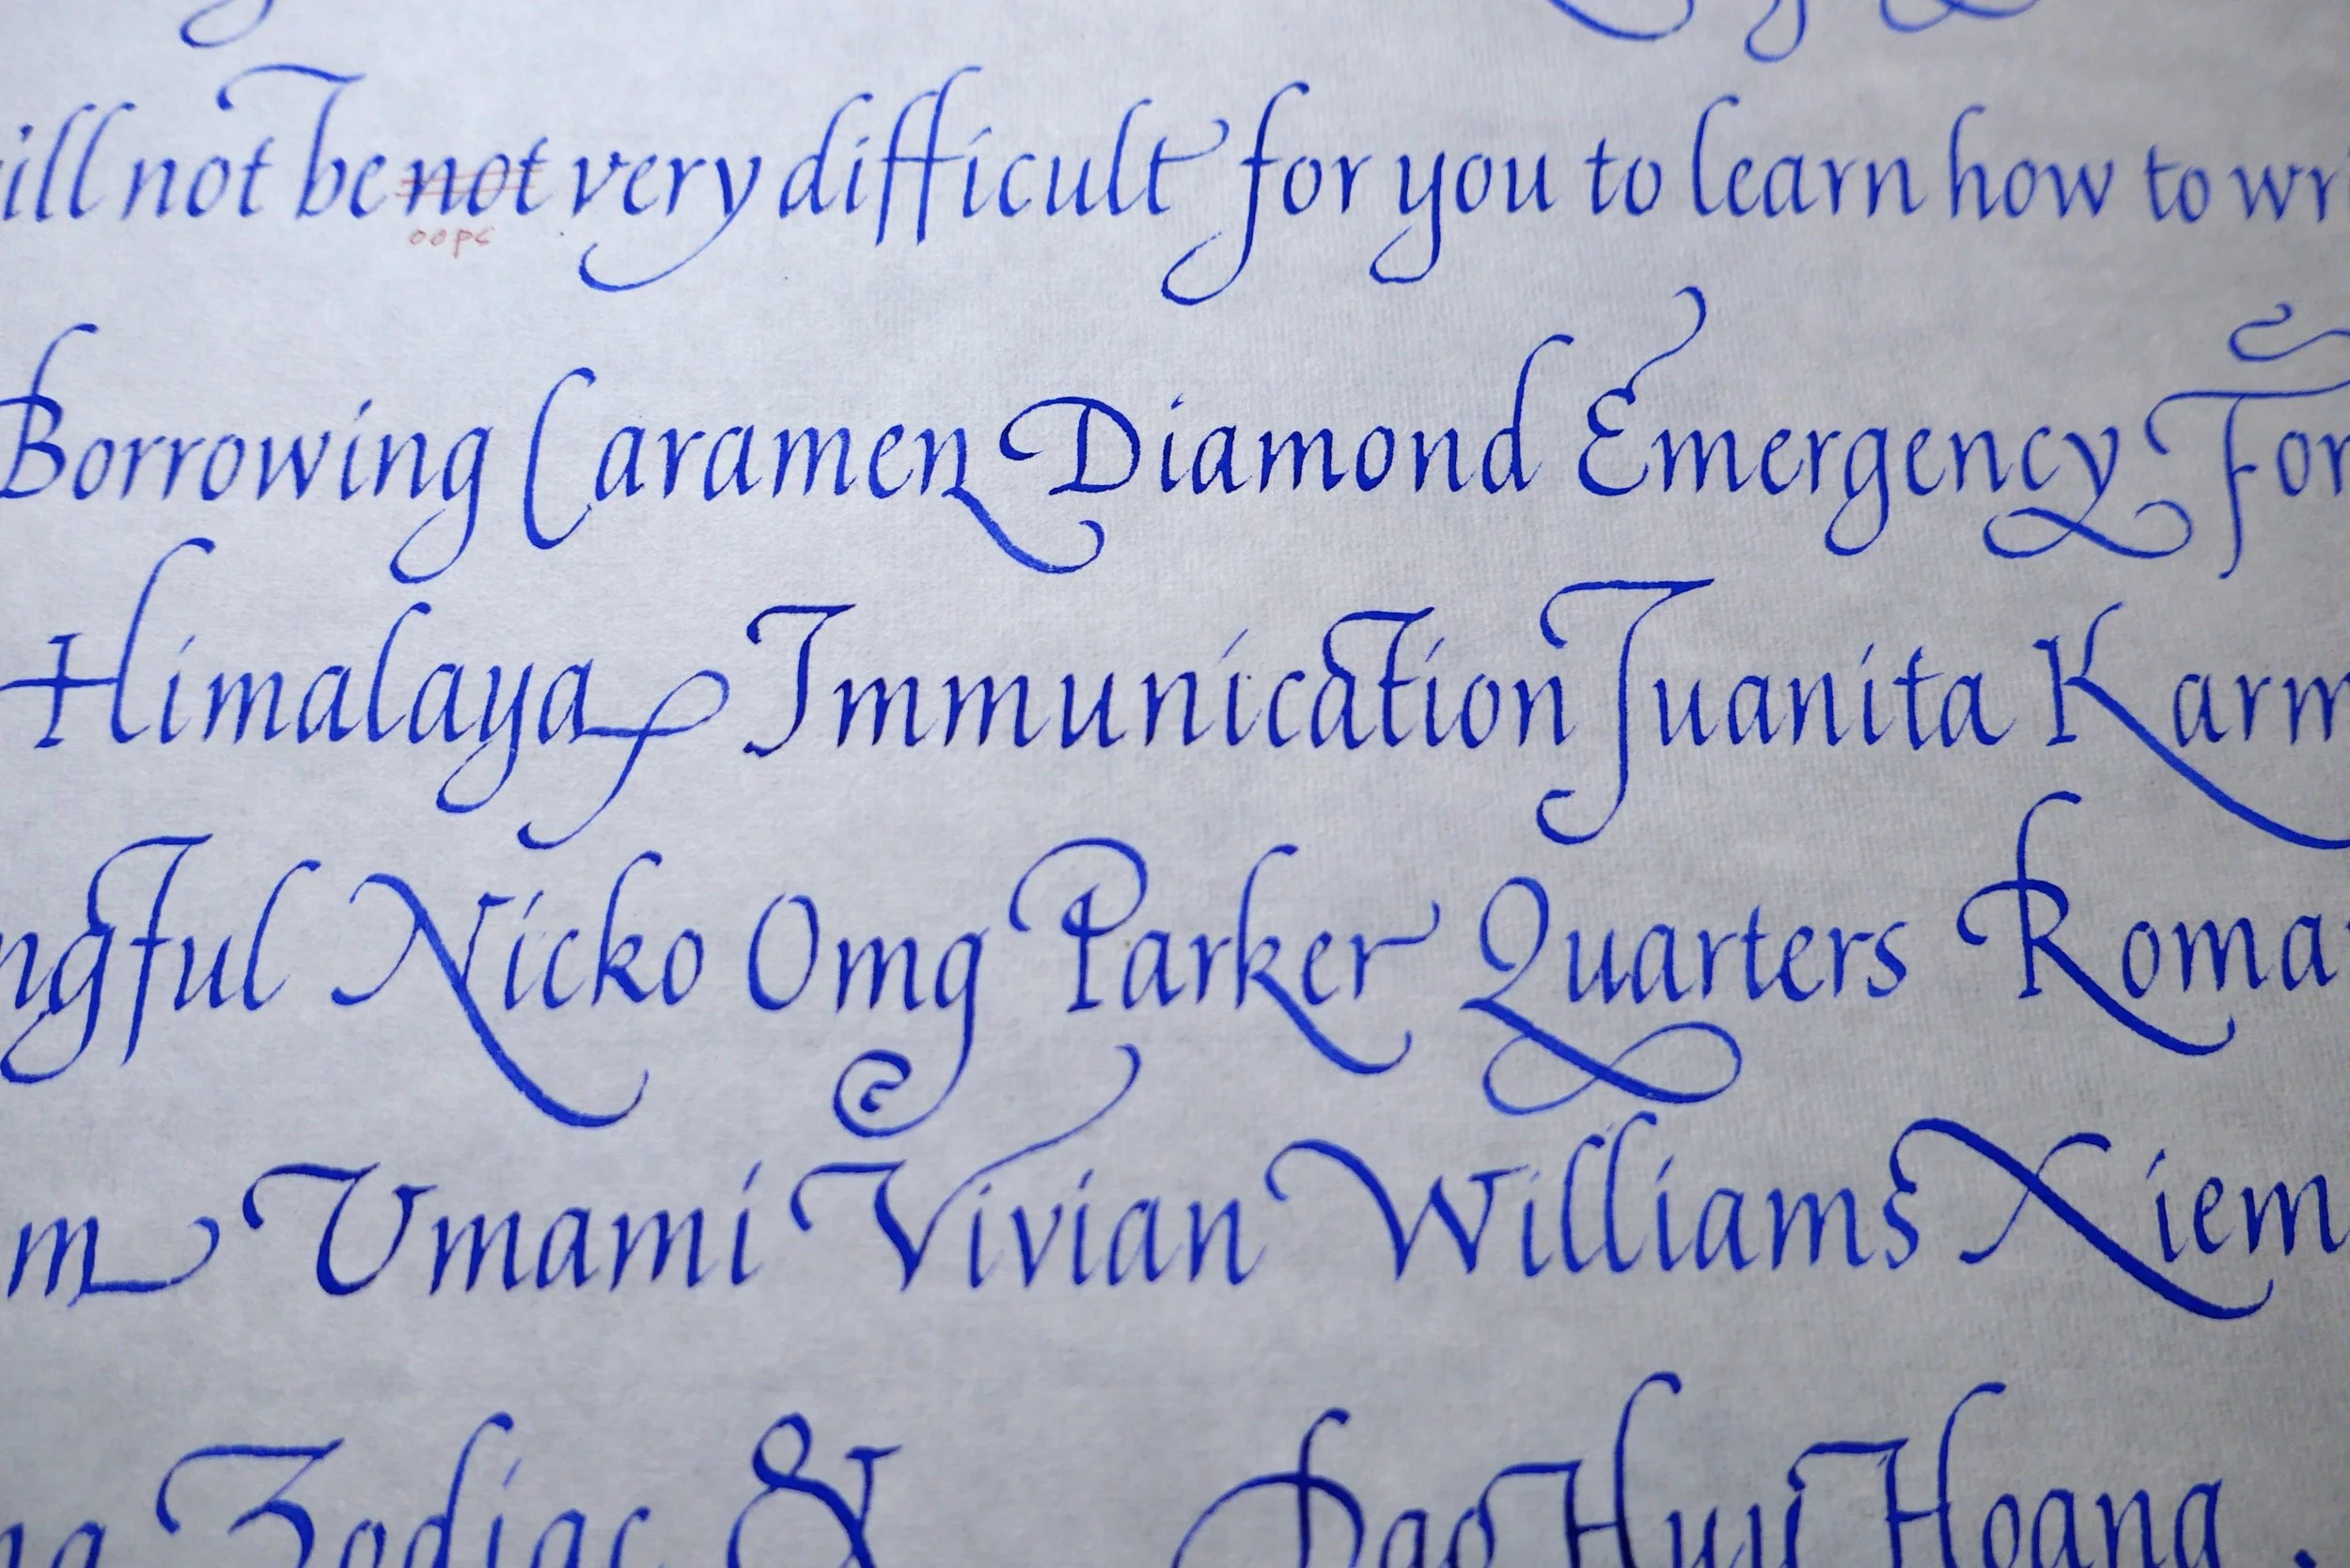 ill not be not very difficult for you to learn how to wr
oops
Borrowing Caramen Diamond Emergency For
Himalaya Immunication Juanita Karm
ngful Nicko Omg Parker Quarters Roma
m Umami Vivian Williams Xiem
ng Zodiac & Dao Huy Hoang .